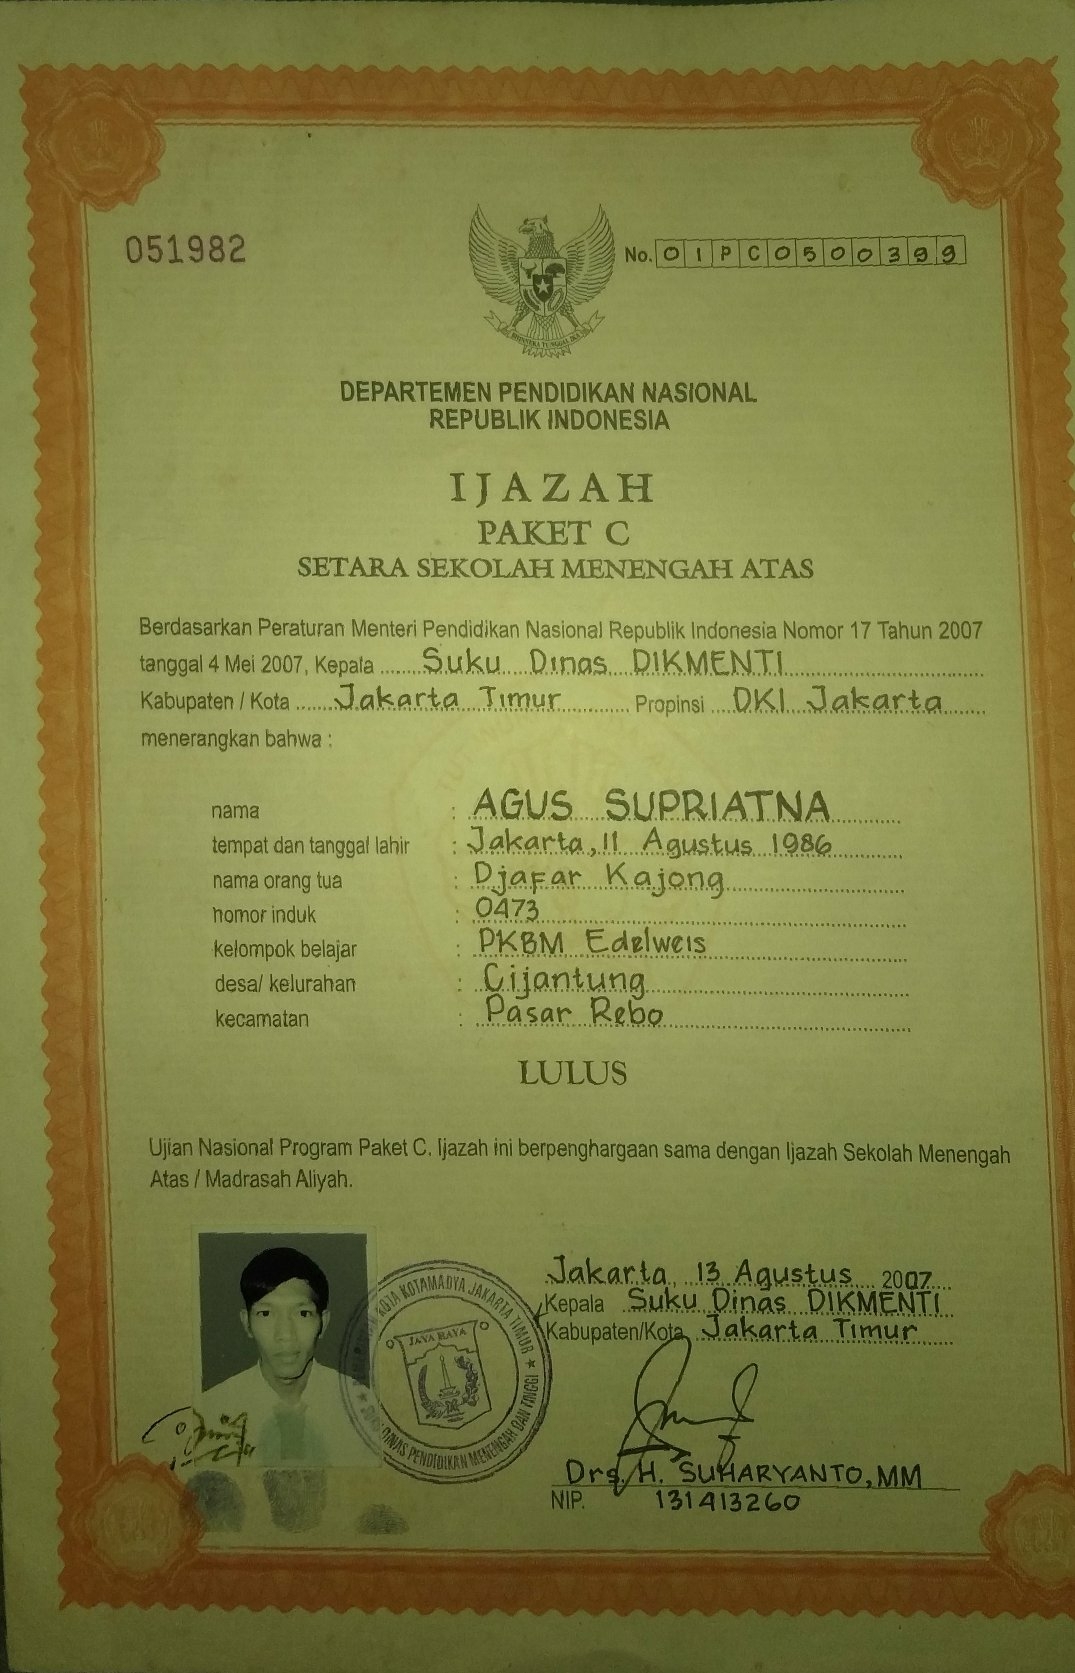 051982
No. 01PC0500399
BHINNEKA TUNGGAL IKA
DEPARTEMEN PENDIDIKAN NASIONAL
REPUBLIK INDONESIA
IJAZAH
PAKET C
SETARA SEKOLAH MENENGAH ATAS
Berdasarkan Peraturan Menteri Pendidikan Nasional Republik Indonesia Nomor 17 Tahun 2007
tanggal 4 Mei 2007, Kepala Suku Dinas DIKMENTI
Kabupaten / Kota Jakarta Timur Propinsi DKI Jakarta
menerangkan bahwa :
nama : AGUS SUPRIATNA
tempat dan tanggal lahir : Jakarta, 11 Agustus 1986
nama orang tua : Djafar Kajong
nomor induk : 0473
kelompok belajar : PKBM Edelweis
desa/ kelurahan : Cijantung
kecamatan : Pasar Rebo
LULUS
Ujian Nasional Program Paket C. Ijazah ini berpenghargaan sama dengan Ijazah Sekolah Menengah
Atas / Madrasah Aliyah.
Jakarta, 13 Agustus 2007
Kepala Suku Dinas DIKMENTI
Kabupaten/Kota Jakarta Timur
KOTA KOTAMADYA JAKARTA TIMUR
JAYA RAYA
DINAS PENDIDIKAN MENENGAH DAN TINGGI
Drs. H. SUHARYANTO, MM
NIP. 131413260